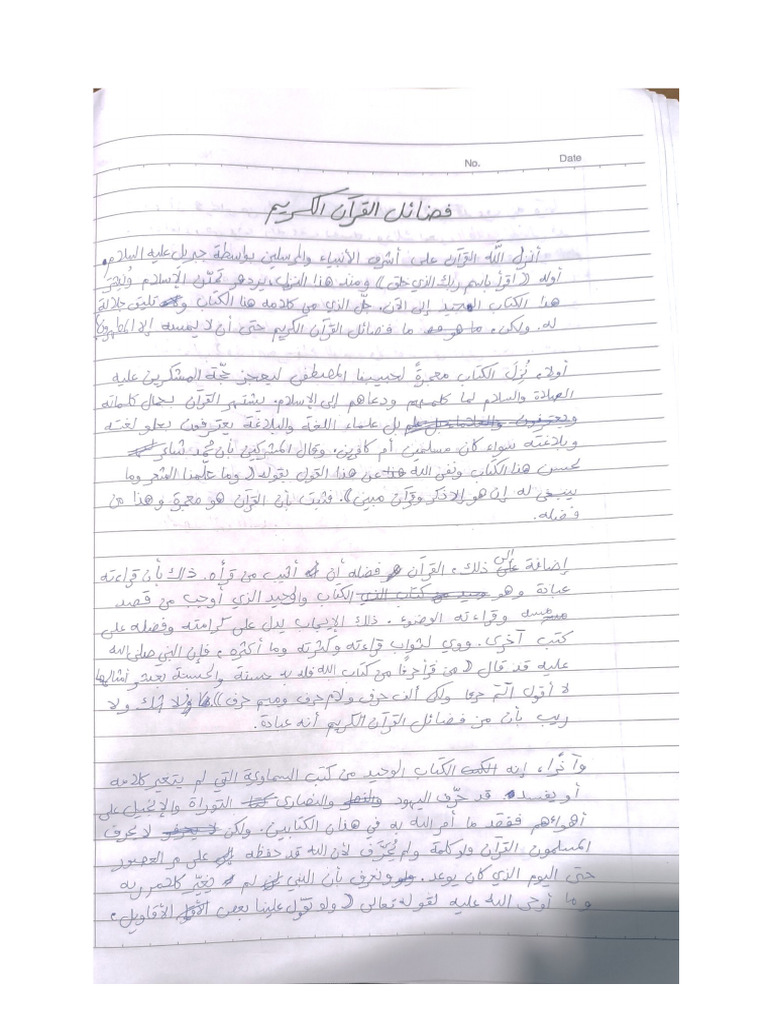 No.
Date
فضائل القرآن الكريم
أنزل الله القرآن على أشرف الأنبياء والمرسلين بواسطة جبريل عليه السلام.
أوله ((اقرأ باسم ربك الذي خلق)) ومنذ هذا النزل، يزدهر الإسلام
هذا الكتاب المجيد إلى الآن. جلّ الذي من كلامه هذا الكتاب ولا تليق جلالة
له. ولكن، ما هو ما فضائل القرآن الكريم حتى أن لا يمسه إلا المطهرون؟
أولا، نُزِلَ الكتاب معجزةً لحبيبنا المصطفى ليعجز حجّة المشكرين عليه
الصلاة والسلام لما كلمهم ودعاهم إلى الإسلام. يشتهر القرآن بجمال كلماته
ويعترفون بل علماء اللغة والبلاغة يعترفون بعلو لغته
وبلاغته سواء كان مسلمين أم كافرين. وقال المشركين بأن محمد شاعر
لحسن هذا الكتاب ونفى الله هذا عن هذا القول بقوله ((وما علّمنا الشعر وما
ينبغي له إن هو إلا ذكر وقرآن مبين)). فثبت بأن القرآن هو معجزة وهذا من
فضله.
إضافة على إلى ذلك، القرآن فضله أن أثيب من قرأه. ذلك بأن قراءته
عبادة وهو الكتاب والوحيد الذي أوجب من قصد
مسه وقراءته الوضوء. ذلك الإيجاب يدل على كرامته وفضله على
كتب آخرى. لثواب قراءته وكثرته وما أكثره، فإن النبي صلى الله
عليه قد قال ((من قرأ حرفًا من كتاب الله فله به حسنة والحسنة بعشر أمثالها
لا أقول الٓمٓ حرفا ولكن ألف حرف ولام حرف وميم حرف)). فلا شك ولا
ريب بأن من فضائل القرآن الكريم أنه عبادة.
وآخرًا، إنه الكتب الكتاب الوحيد من كتب السماوية التي لم يتغير كلامه
أو يفسد. قد حرّف اليهود والنصارى التوراة والإنجيل على
أهواءهم ففقد ما أمر الله به في هذان الكتابين. ولكن لا يحرف لا يحرف
المسلمون القرآن ولو كلمة ولم يُحَرَّف لأن الله قد حفظه على مر العصور
حتى اليوم الذي كان يوعد. ونعرف بأن النبي لم يُغَيِّر كلام ربه
وما أوحى الله عليه لقوله تعالى ((ولو تقوّل علينا بعض الأقاويل،